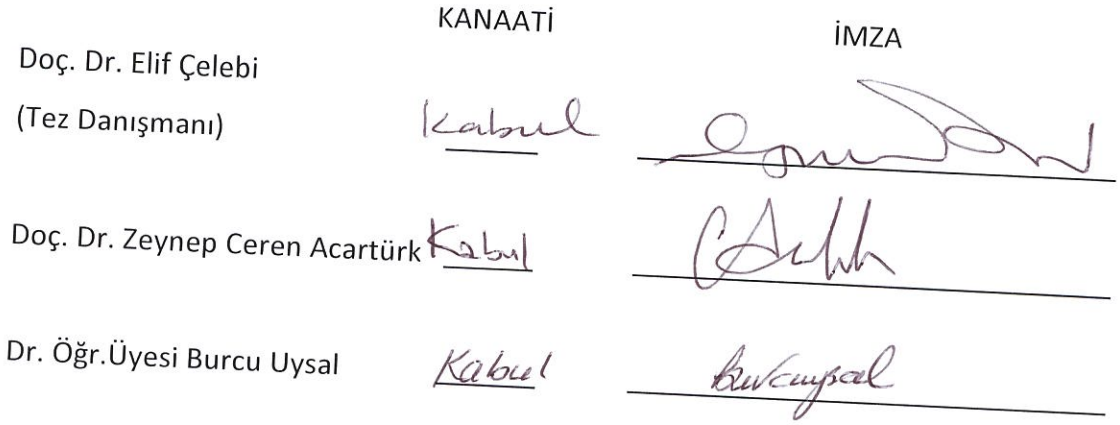 KANAATİ İMZA
Doç. Dr. Elif Çelebi
(Tez Danışmanı) Kabul
Doç. Dr. Zeynep Ceren Acartürk Kabul
Dr. Öğr.Üyesi Burcu Uysal Kabul